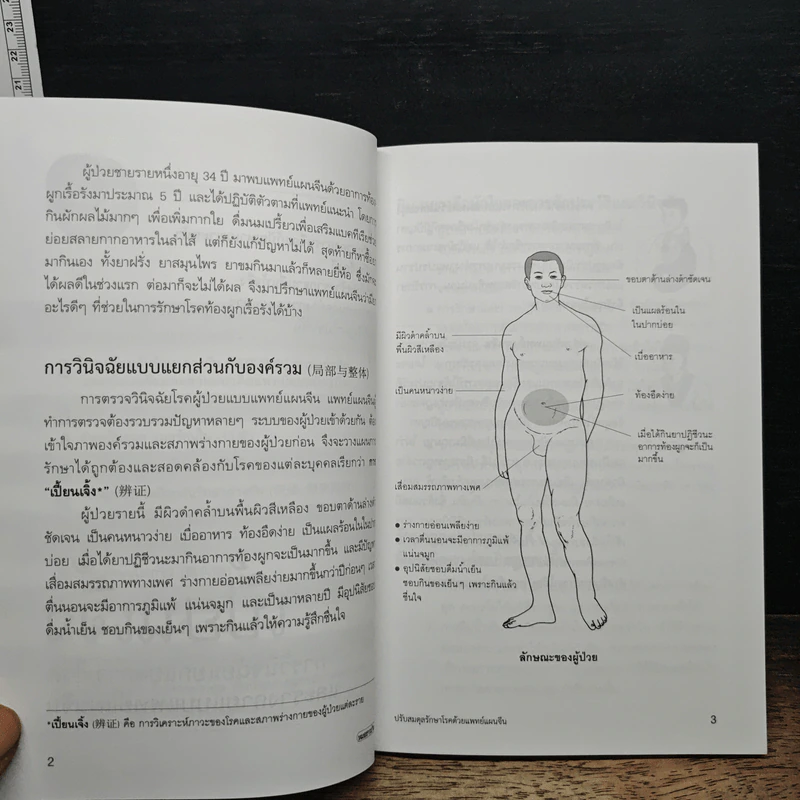 23
22
21
ผู้ป่วยชายรายหนึ่งอายุ 34 ปี มาพบแพทย์แผนจีนด้วยอาการท้อง
ผูกเรื้อรังมาประมาณ 5 ปี และได้ปฏิบัติตัวตามที่แพทย์แนะนำ
กินผักผลไม้มากๆ เพื่อเพิ่มกากใย ดื่มนมเปรี้ยวเพื่อเสริมแบคทีเรียช่วย
ย่อยสลายกากอาหารในลำไส้ แต่ก็ยังแก้ปัญหาไม่ได้ สุดท้ายก็หาซื้อยา
มากินเอง ทั้งยาฝรั่ง ยาสมุนไพร ยาขมกินมาแล้วก็หลายยี่ห้อ
ได้ผลดีในช่วงแรก ต่อมาก็จะไม่ได้ผล จึงมาปรึกษาแพทย์แผนจีน
อะไรดีๆ ที่ช่วยในการรักษาโรคท้องผูกเรื้อรังได้บ้าง
การวินิจฉัยแบบแยกส่วนกับองค์รวม (局部与整体)
การตรวจวินิจฉัยโรคผู้ป่วยแบบแพทย์แผนจีน แพทย์แผนจีน
ทำการตรวจต้องรวบรวมปัญหาหลายๆ ระบบของผู้ป่วยเข้าด้วยกัน
เข้าใจภาพองค์รวมและสภาพร่างกายของผู้ป่วยก่อน จึงจะวางแผนการ
รักษาได้ถูกต้องและสอดคล้องกับโรคของแต่ละบุคคลเรียกว่า
"เปี้ยนเจิ้ง*" (辨证)
ผู้ป่วยรายนี้ มีผิวดำคล้ำบนพื้นผิวสีเหลือง ขอบตาด้านล่างดำ
ชัดเจน เป็นคนหนาวง่าย เบื่ออาหาร ท้องอืดง่าย เป็นแผลร้อนในในปาก
บ่อย เมื่อได้ยาปฏิชีวนะมากินอาการท้องผูกจะเป็นมากขึ้น และมีปัญหา
เสื่อมสมรรถภาพทางเพศ ร่างกายอ่อนเพลียง่ายมากขึ้นกว่าปีก่อนๆ เวลา
ตื่นนอนจะมีอาการภูมิแพ้ แน่นจมูก และเป็นมาหลายปี มีอุปนิสัยชอบ
ดื่มน้ำเย็น ชอบกินของเย็นๆ เพราะกินแล้วให้ความรู้สึกชื่นใจ
*เปี้ยนเจิ้ง (辨证) คือ การวิเคราะห์ภาวะของโรคและสภาพร่างกายของผู้ป่วยแต่ละราย
2
ขอบตาด้านล่างดำชัดเจน
เป็นแผลร้อนใน
ในปากบ่อย
มีผิวดำคล้ำบน
พื้นผิวสีเหลือง
เบื่ออาหาร
เป็นคนหนาวง่าย
ท้องอืดง่าย
เมื่อได้กินยาปฏิชีวนะ
อาการท้องผูกจะก็เป็น
มากขึ้น
เสื่อมสมรรถภาพทางเพศ
• ร่างกายอ่อนเพลียง่าย
• เวลาตื่นนอนจะมีอาการภูมิแพ้
แน่นจมูก
• อุปนิสัยชอบดื่มน้ำเย็น
ชอบกินของเย็นๆ เพราะกินแล้ว
ชื่นใจ
ลักษณะของผู้ป่วย
ปรับสมดุลรักษาโรคด้วยแพทย์แผนจีน
3